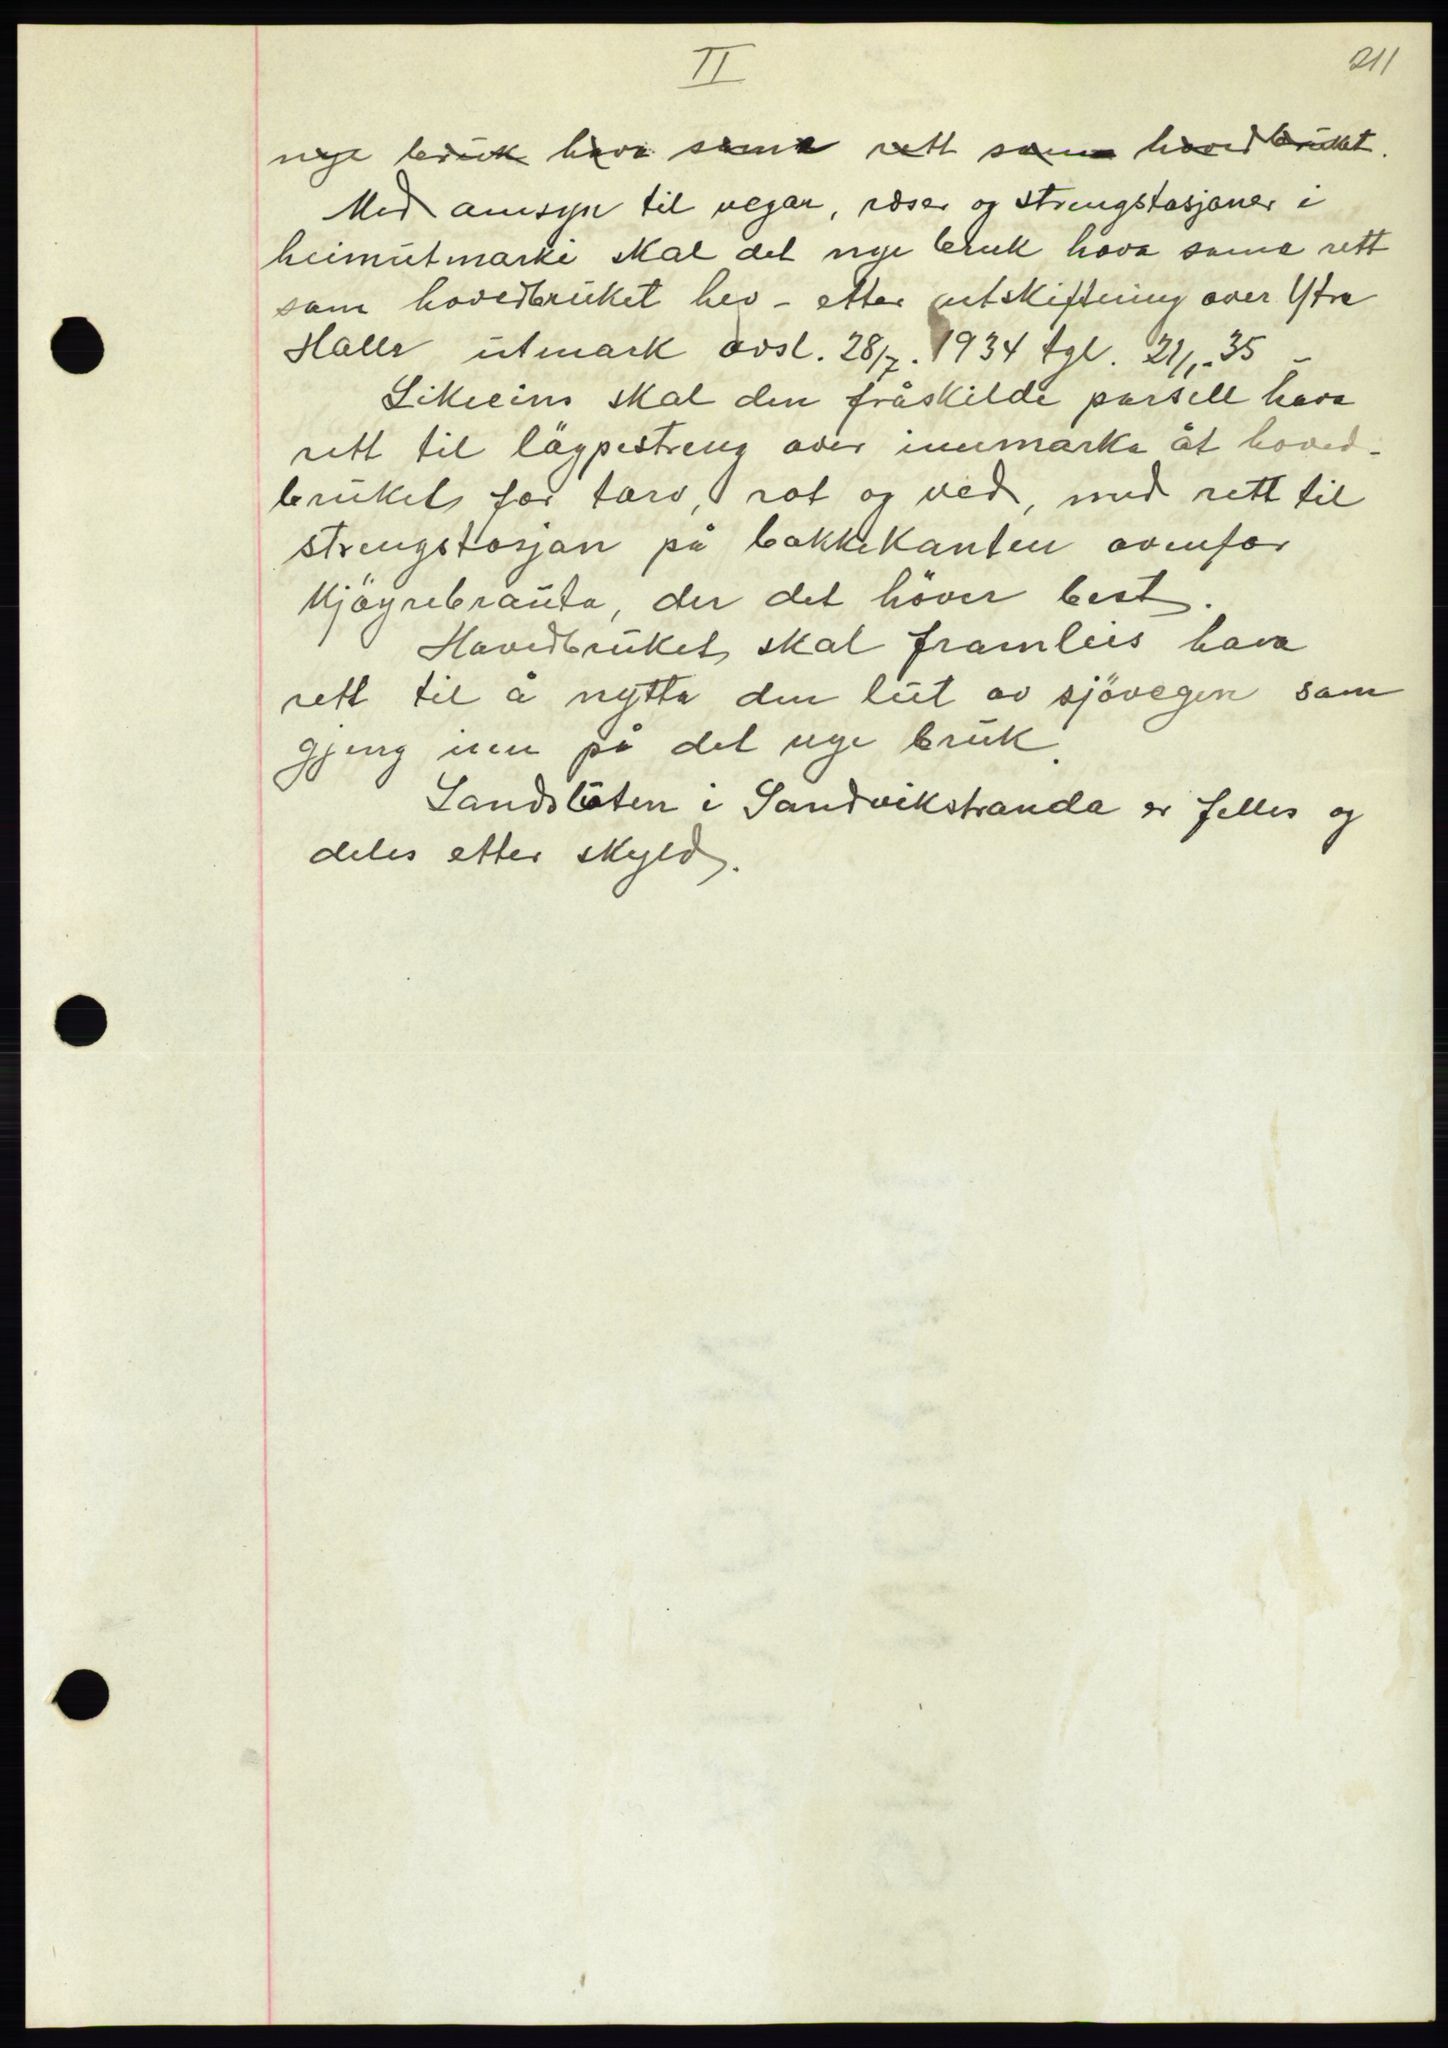 II
211
nye bruk hava sama rett som hovedbruket.
Med omsyn til vegar, röser og strengstasjoner i
heimutmarki skal det nye bruk hava sama rett
som hovedbruket hev - etter utskiftning over Ytre
Halls utmark avsl. 28/7. 1934 tgl. 21/1.-35 -
Likeeins skal den fråskilde parsell hava
rett til löypestreng over innmarka åt hoved-
bruket for torv, rot og ved, med rett til
strengstasjon på bakkekanten ovenfor
Mjöyrebrauta, der det höver best.
Hovedbruket skal framleis hava
rett til å nytta den lut av sjövegen som
gjeng inn på det nye bruk.
Landslåten i Sandvikstranda er felles og
deles etter skyld.